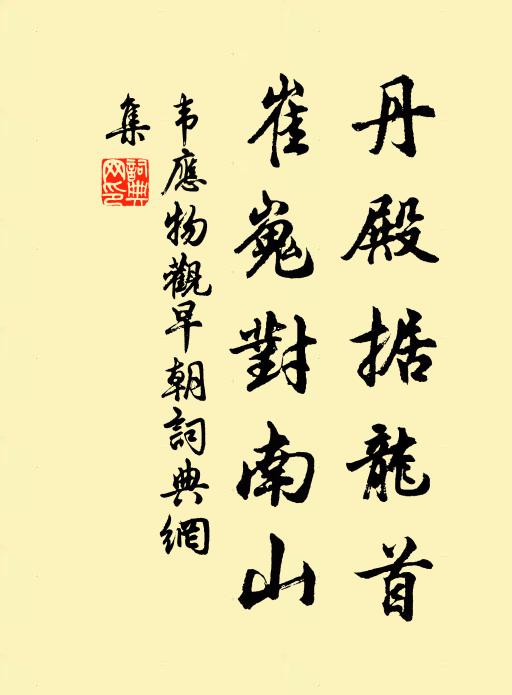 丹殿据龍首
崔嵬對南山
韦應物觀早朝詞典網
集
詞典網印